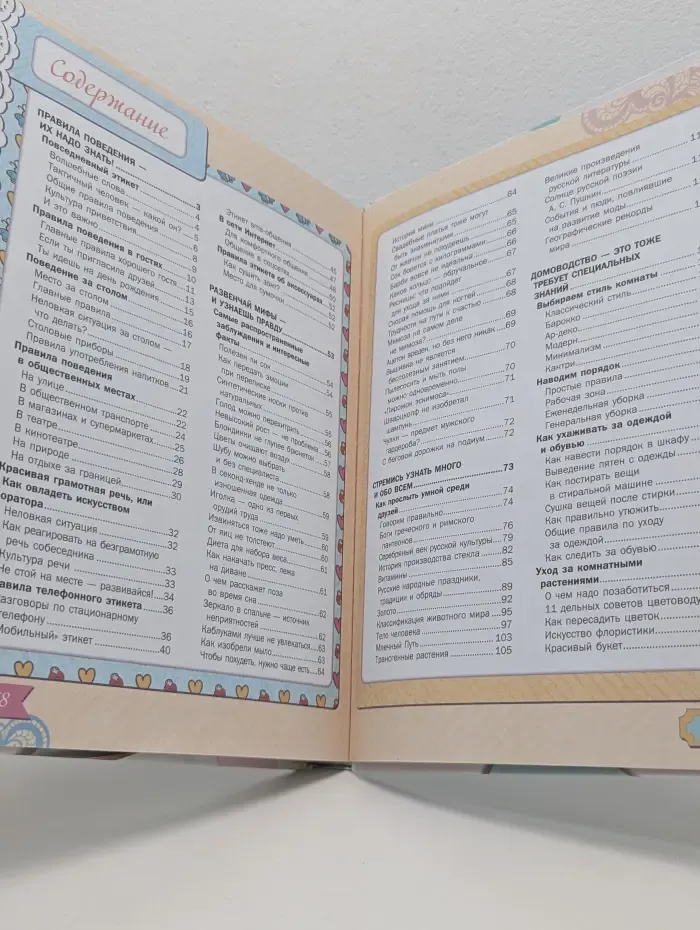 Содержание
ПРАВИЛА ПОВЕДЕНИЯ —
ИХ НАДО ЗНАТЬ!
Повседневный этикет 3
Волшебные слова 4
Тактичный человек — какой он? 4
Общие правила поведения 5
Культура приветствия 6
И это важно 8
Правила поведения в гостях 9
Главные правила хорошего гостя 10
Если ты пригласила друзей 11
Ты идешь на день рождения 13
Поведение за столом 15
Место за столом 16
Главные правила 16
Неловкая ситуация за столом —
что делать? 17
Столовые приборы 18
Правила употребления напитков 19
Правила поведения 21
в общественных местах
На улице 22
В общественном транспорте 22
В магазинах и супермаркетах 24
В театре 25
В кинотеатре 26
На природе 28
На отдыхе за границей 29
Красивая грамотная речь, или 30
Как овладеть искусством
оратора
Неловкая ситуация 32
Как реагировать на безграмотную 32
речь собеседника 33
Культура речи 33
Не стой на месте — развивайся! 34
авила телефонного этикета 36
Разговоры по стационарному
телефону 36
Мобильный» этикет 40
Этикет
В сети Интернет
Для комфортного общения
Общение в соцсетях
Правила этикета об аксессуарах
Как сушить зонт?
Место для сумочки
РАЗВЕНЧАЙ МИФЫ —
И УЗНАЕШЬ ПРАВДУ
Самые распространенные 53
заблуждения и интересные
факты
Полезен ли сок 54
Как передать эмоции
при переписке 54
Синтетические носки против
натуральных 55
Голод можно перехитрить 55
Невысокий рост — не проблема 56
Блондинки не глупее брюнеток 56
Цветы очищают воздух 57
Шубу можно выбрать
и без специалиста 58
В секонд-хенде не только
изношенная одежда 58
Иголка — одно из первых
орудий труда 59
Извиняться тоже надо уметь 59
От яиц не толстеют 60
Диета для набора веса 60
Как накачать пресс, лежа
на диване 61
О чем расскажет поза
во время сна 62
Зеркало в спальне — источник
неприятностей 62
Каблуками лучше не увлекаться 63
Как изобрели мыло 63
Чтобы похудеть, нужно чаще есть 64
История мини 64
Свадебные платья тоже могут
быть знаменитыми 65
От жвачки не похудеешь 65
Сок борется с килограммами 66
Барби вовсе не идеальна 66
Какое кольцо — обручальное 67
Ресницы: что подойдет
для ухода за ними 67
Скорая помощь для ногтей 68
Трудности на пути к счастью 68
Мимоза на самом деле
не мимоза? 69
Ацетон вреден, но без него никак 69
Вышивка не является
бесполезным занятием 70
Пылесосить и мыть полы
можно одновременно 70
«Пирожок эскимоса» 71
Шварцкопф не изобретал
шампунь 71
Чулки — предмет мужского
гардероба? 72
С беговой дорожки на подиум 72
СТРЕМИСЬ УЗНАТЬ МНОГО
И ОБО ВСЕМ 73
Как прослыть умной среди
друзей 74
Говорим правильно 74
Боги греческого и римского
пантеонов 76
Серебряный век русской культуры 79
История производства стекла 82
Витамины 85
Русские народные праздники,
традиции и обряды 89
Золото 92
Классификация животного мира 95
Тело человека 97
Млечный Путь 103
Трансгенные растения 105
Великие произведения
русской литературы
Солнце русской поэзии
А. С. Пушкин
События и люди, повлиявшие
на развитие моды
Географические рекорды
мира
ДОМОВОДСТВО — ЭТО ТОЖЕ
ТРЕБУЕТ СПЕЦИАЛЬНЫХ
ЗНАНИЙ
Выбираем стиль комнаты
Классический стиль
Барокко
Ар-деко
Модерн
Минимализм
Кантри
Наводим порядок
Простые правила
Рабочая зона
Еженедельная уборка
Генеральная уборка
Как ухаживать за одеждой
и обувью
Как навести порядок в шкафу
Выведение пятен с одежды
Как постирать вещи
в стиральной машине
Сушка вещей после стирки
Как правильно утюжить
Общие правила по уходу
за одеждой
Как следить за обувью
Уход за комнатными
растениями
О чем надо позаботиться
11 дельных советов цветоводу
Как пересадить цветок
Искусство флористики
Красивый букет